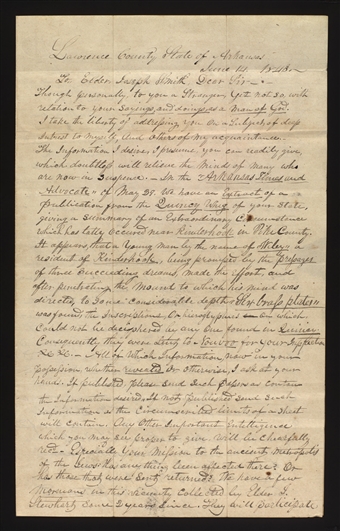 Lawrence County State of Arkansas
June 14. 1843.
To Elder Joseph Smith Dear Sir.
Though personally, to you a Stranger, yet not so, with
relation to your Sayings, and doings as a Man of God.
I take the liberty of addressing you On a Subject of deep
Intrest to myself, And Others of my acquaintance.
The Information I desire, I presume you can readily give,
which doubtless will relieve the minds of many who
are now in Suspense. In the "Arkansas Times and
Advocate" of May 29. We have an Extract of a
publication from the Quincy Whig of your State,
giving a Summary of an Extraordinary Circumstance
which has lately occured near Kinderhook in Pike County.
It appears that a Young man by the name of Wiley a
resident of Kinderhook, being prompted by the presages
of three succeeding dreams, made the effort, and
after penetrating the Mount to which his mind was
directed, to Some Considerable depth Six brass plates
was found, the Inscriptions, Or hieroglyphics On which
Could not be deciphered by any One found in Quincy.
Consequently they were lately to Nauvoo for Your Inspection
&c &c. All Or Which Information, now in your
possession, whether revealed Or otherwise, I ask at your
hand. If published please Send Such Papers as contain
the Information desired. If not published Send Such
Information as the Circumscribed limits of a Sheet
will contain. Any Other Important Intelligence
which you may See proper to give Will be Chearfully
recd. Especially Your Mission to the ancient Metropolis
of the Jews has any thing been affected there? Or
has those that were Sent, returned. We have a few
Mormons in this vicinity Collected by Elder
Some 2 years Since. They will participate